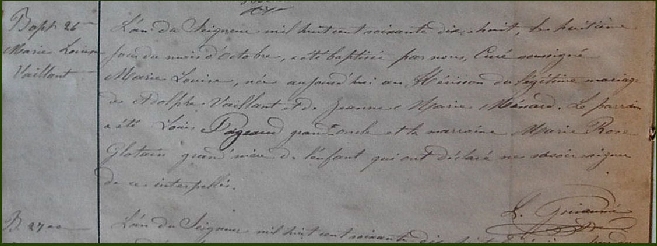 Bapt. 26
Marie Louise
Vaillant
L'an du Seigneur mil huit cent soixante dix-huit, le huitième
jour du mois d'Octobre, a été baptisée par nous, Curé soussigné
Marie Louise, née aujourd'hui au Hérisson du légitime mariage
de Adolphe Vaillant et de Jeanne Marie Ménard. Le parrain
a été Louis Pageaud grand oncle et la marraine Marie Rose
grand'mère de l'enfant qui ont déclaré ne savoir signer
de ce interpellés.
B 27
L'an du Seigneur mil huit cent soixante dix huit